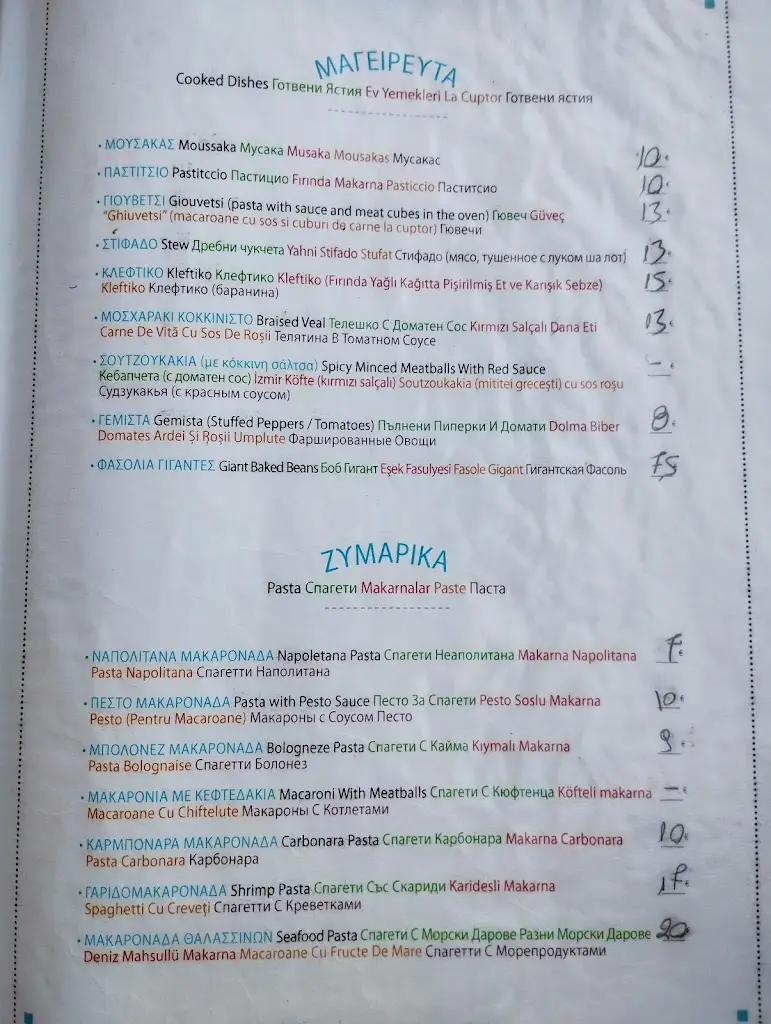 ΜΑΓΕΙΡΕΥΤΑ
Cooked Dishes Готвени Ястия Ev Yemekleri La Cuptor Готвени ястия
• ΜΟΥΣΑΚΑΣ Moussaka Мусака Musaka Mousakas Мусакас 10.
• ΠΑΣΤΙΤΣΙΟ Pastitccio Пастицио Fırında Makarna Pasticcio Паститсио 10
• ΓΙΟΥΒΕΤΣΙ Giouvetsi (pasta with sauce and meat cubes in the oven) Гювеч Güveç 13.
"Ghiuvetsi" (macaroane cu sos si cuburi de carne la cuptor) Гювечи
• ΣΤΙΦΑΔΟ Stew Дребни чукчета Yahni Stifado Stufat Стифадо (мясо, тушенное с луком ша лот) 13.
• ΚΛΕΦΤΙΚΟ Kleftiko Клефтико Kleftiko (Fırında Yağlı Kağıtta Pişirilmiş Et ve Karışık Sebze) 15.
Kleftiko Клефтико (баранина)
• ΜΟΣΧΑΡΑΚΙ ΚΟΚΚΙΝΙΣΤΟ Braised Veal Телешко С Доматен Сос Kırmızı Salçalı Dana Eti 13
Carne De Vită Cu Sos De Roșii Телятина В Томатном Соусе
• ΣΟΥΤΖΟΥΚΑΚΙΑ (με κόκκινη σάλτσα) Spicy Minced Meatballs With Red Sauce –
Кебапчета (с доматен сос) İzmir Köfte (kırmızı salçalı) Soutzoukakia (mititei grecești) cu sos roșu
Судзукакья (с красным соусом)
• ΓΕΜΙΣΤΑ Gemista (Stuffed Peppers / Tomatoes) Пълнени Пиперки И Домати Dolma Biber 8
Domates Ardei Și Roșii Umplute Фаршированные Овощи
• ΦΑΣΟΛΙΑ ΓΙΓΑΝΤΕΣ Giant Baked Beans Боб Гигант Eşek Fasulyesi Fasole Gigant Гигантская Фасоль 7,5
ΖΥΜΑΡΙΚΑ
Pasta Спагети Makarnalar Paste Паста
• ΝΑΠΟΛΙΤΑΝΑ ΜΑΚΑΡΟΝΑΔΑ Napoletana Pasta Спагети Неаполитана Makarna Napolitana 7€
Pasta Napolitana Спагетти Наполитана
• ΠΕΣΤΟ ΜΑΚΑΡΟΝΑΔΑ Pasta with Pesto Sauce Песто За Спагети Pesto Soslu Makarna 10
Pesto (Pentru Macaroane) Макароны с Соусом Песто
• ΜΠΟΛΟΝΕΖ ΜΑΚΑΡΟΝΑΔΑ Bologneze Pasta Спагети С Кайма Kıymalı Makarna 9
Pasta Bolognaise Спагетти Болонез
• ΜΑΚΑΡΟΝΙΑ ΜΕ ΚΕΦΤΕΔΑΚΙΑ Macaroni With Meatballs Спагети С Кюфтенца Köfteli makarna –
Macaroane Cu Chiftelute Макароны С Котлетами
• ΚΑΡΜΠΟΝΑΡΑ ΜΑΚΑΡΟΝΑΔΑ Carbonara Pasta Спагети Карбонара Makarna Carbonara 10
Pasta Carbonara Карбонара
• ΓΑΡΙΔΟΜΑΚΑΡΟΝΑΔΑ Shrimp Pasta Спагети Със Скариди Karidesli Makarna 17€
Spaghetti Cu Creveți Спагетти С Креветками
• ΜΑΚΑΡΟΝΑΔΑ ΘΑΛΑΣΣΙΝΩΝ Seafood Pasta Спагети С Морски Дарове Разни Морски Дарове 20
Deniz Mahsullü Makarna Macaroane Cu Fructe De Mare Спагетти С Морепродуктами